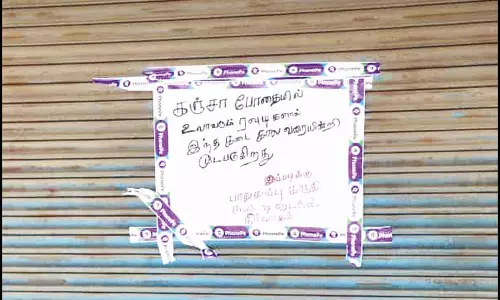 கஞ்சா போதையில்
உலாவரும் ரவுடிகளால்
இந்த கடை கால வரையின்றி
மூடபடுகிறது
இப்படிக்கு
பாதுகாப்பு கருதி
நிர்வாகம்
PhonePe
PhonePe
PhonePe
PhonePe
PhonePe
PhonePe